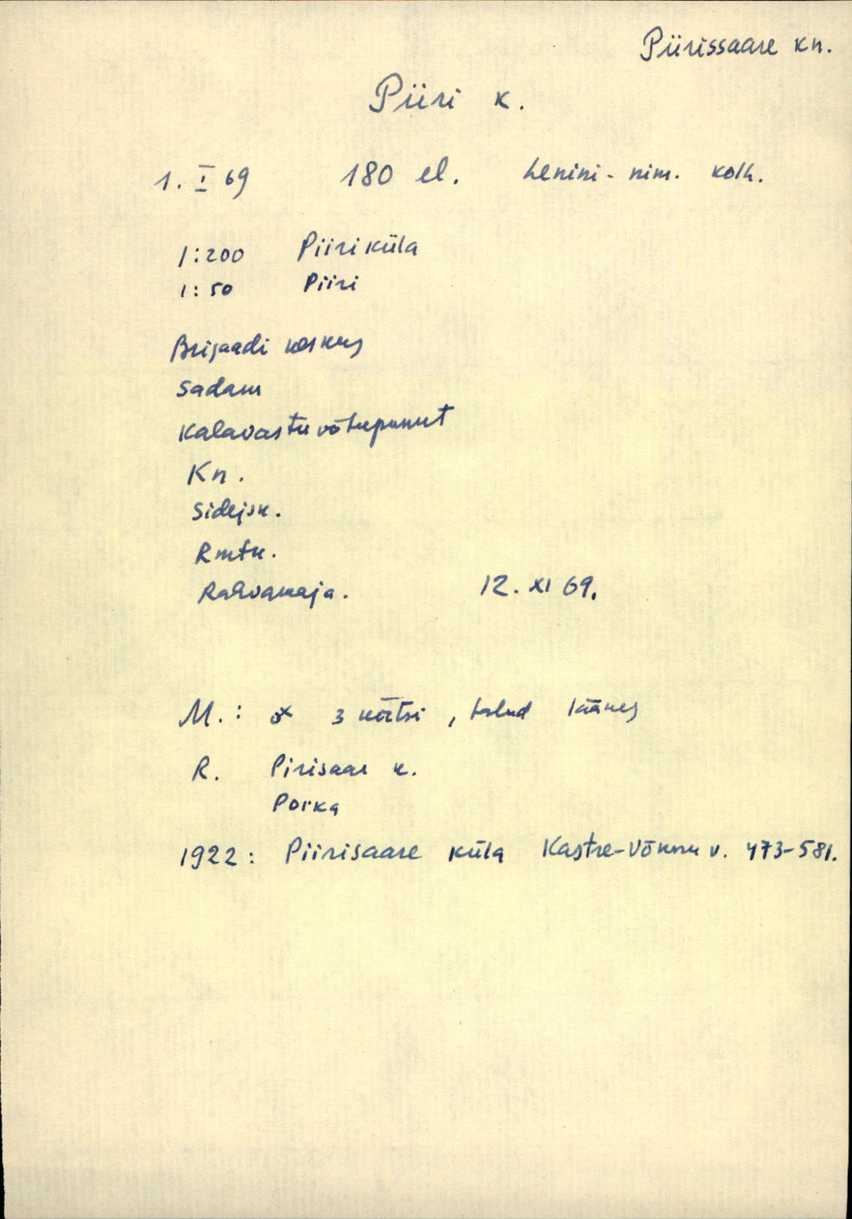 Piirissaare kn.
Piiri k.
1. I 69 180 el. Lenini-nim. kolh.
1:200 Piiriküla
1:50 Piiri
Brigaadi keskus
Sadam
Kalavastuvõtupunkt
Kn.
Sidejsk.
Rmtk.
Rahvamaja. 12. XI 69.
M.: 3 kõrtsi, talud läänes
R. Pirisaar k.
Porka
1922: Piirisaare küla Kastre-Võnnu v. 473-581.